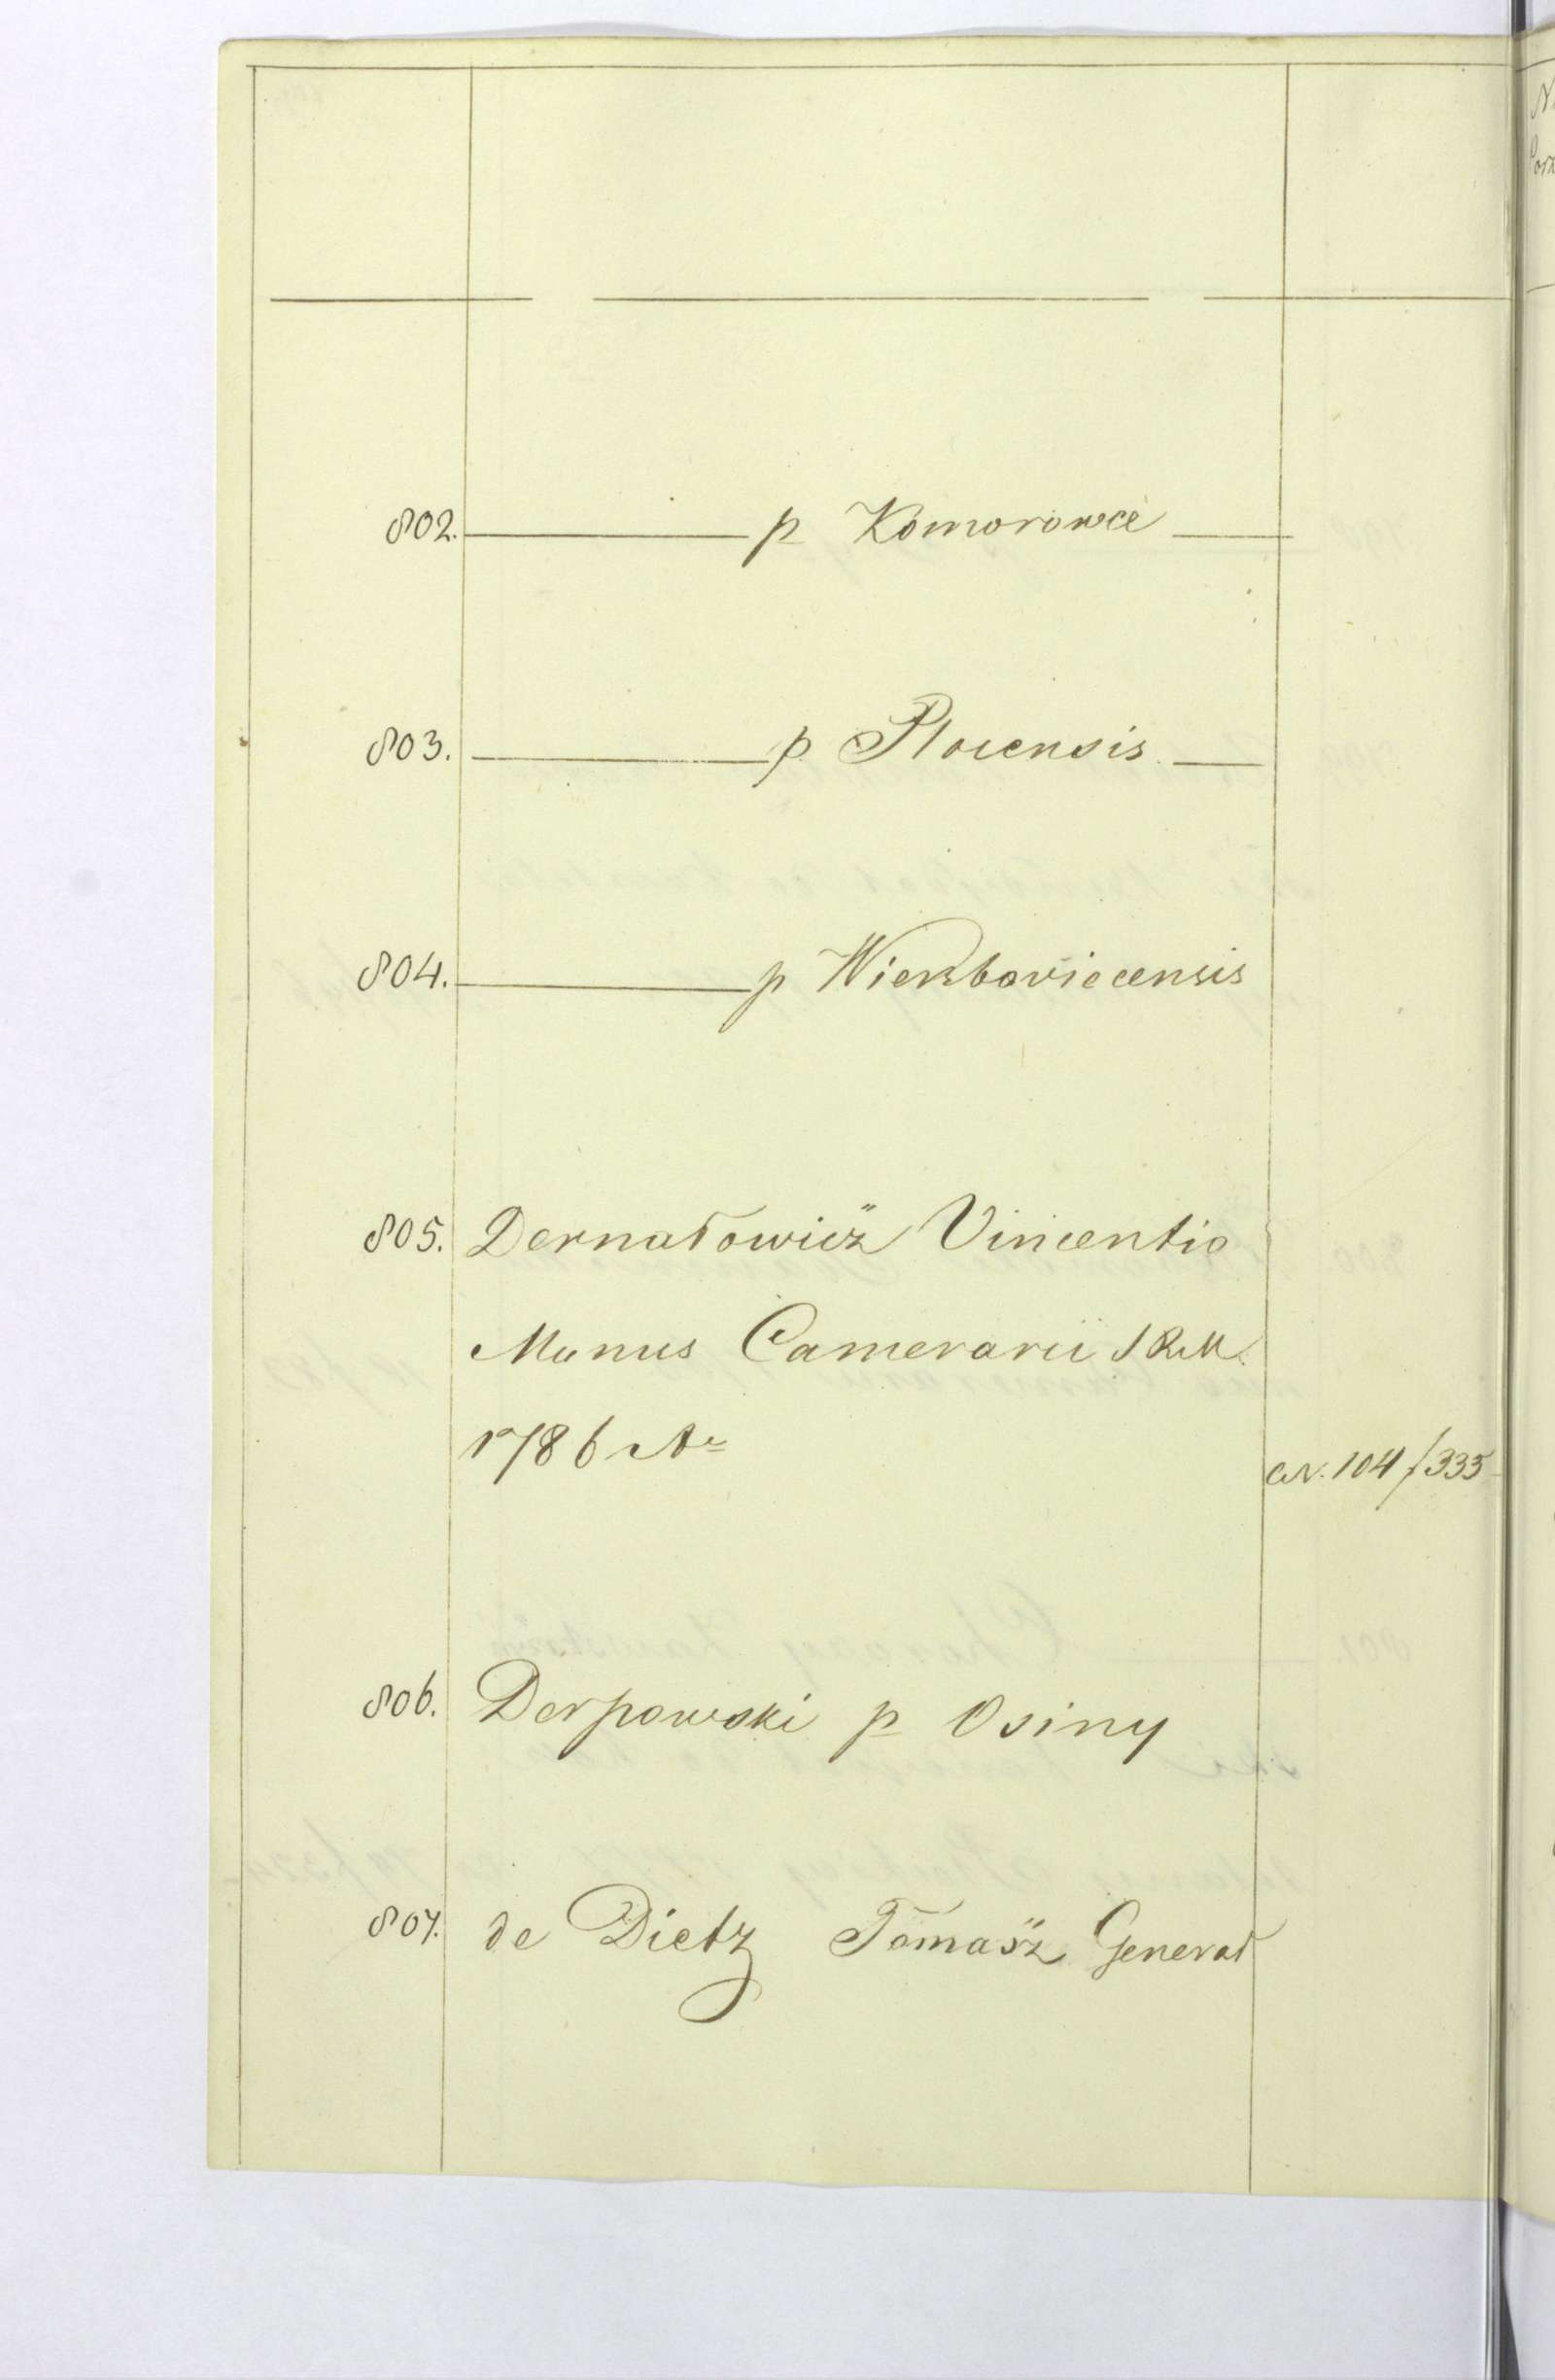 802. ——— p Komorowce ———
803. ——— p Plocensis ———
804. ——— p Wierzboviecensis
805. Dernałowicz Vincentio
Munus Camerarii SRM.
1786 Ao
CN. 104/335
806. Derpowski p Osiny
807. de Dietz Tomasz Generał